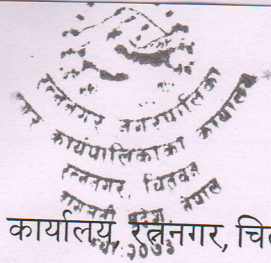 रत्ननगर नगरपालिका
नगर कार्यपालिकाको कार्यालय
रत्ननगर, चितवन
बागमती प्रदेश नेपाल
कार्यालय, रत्ननगर, चि
२०७३